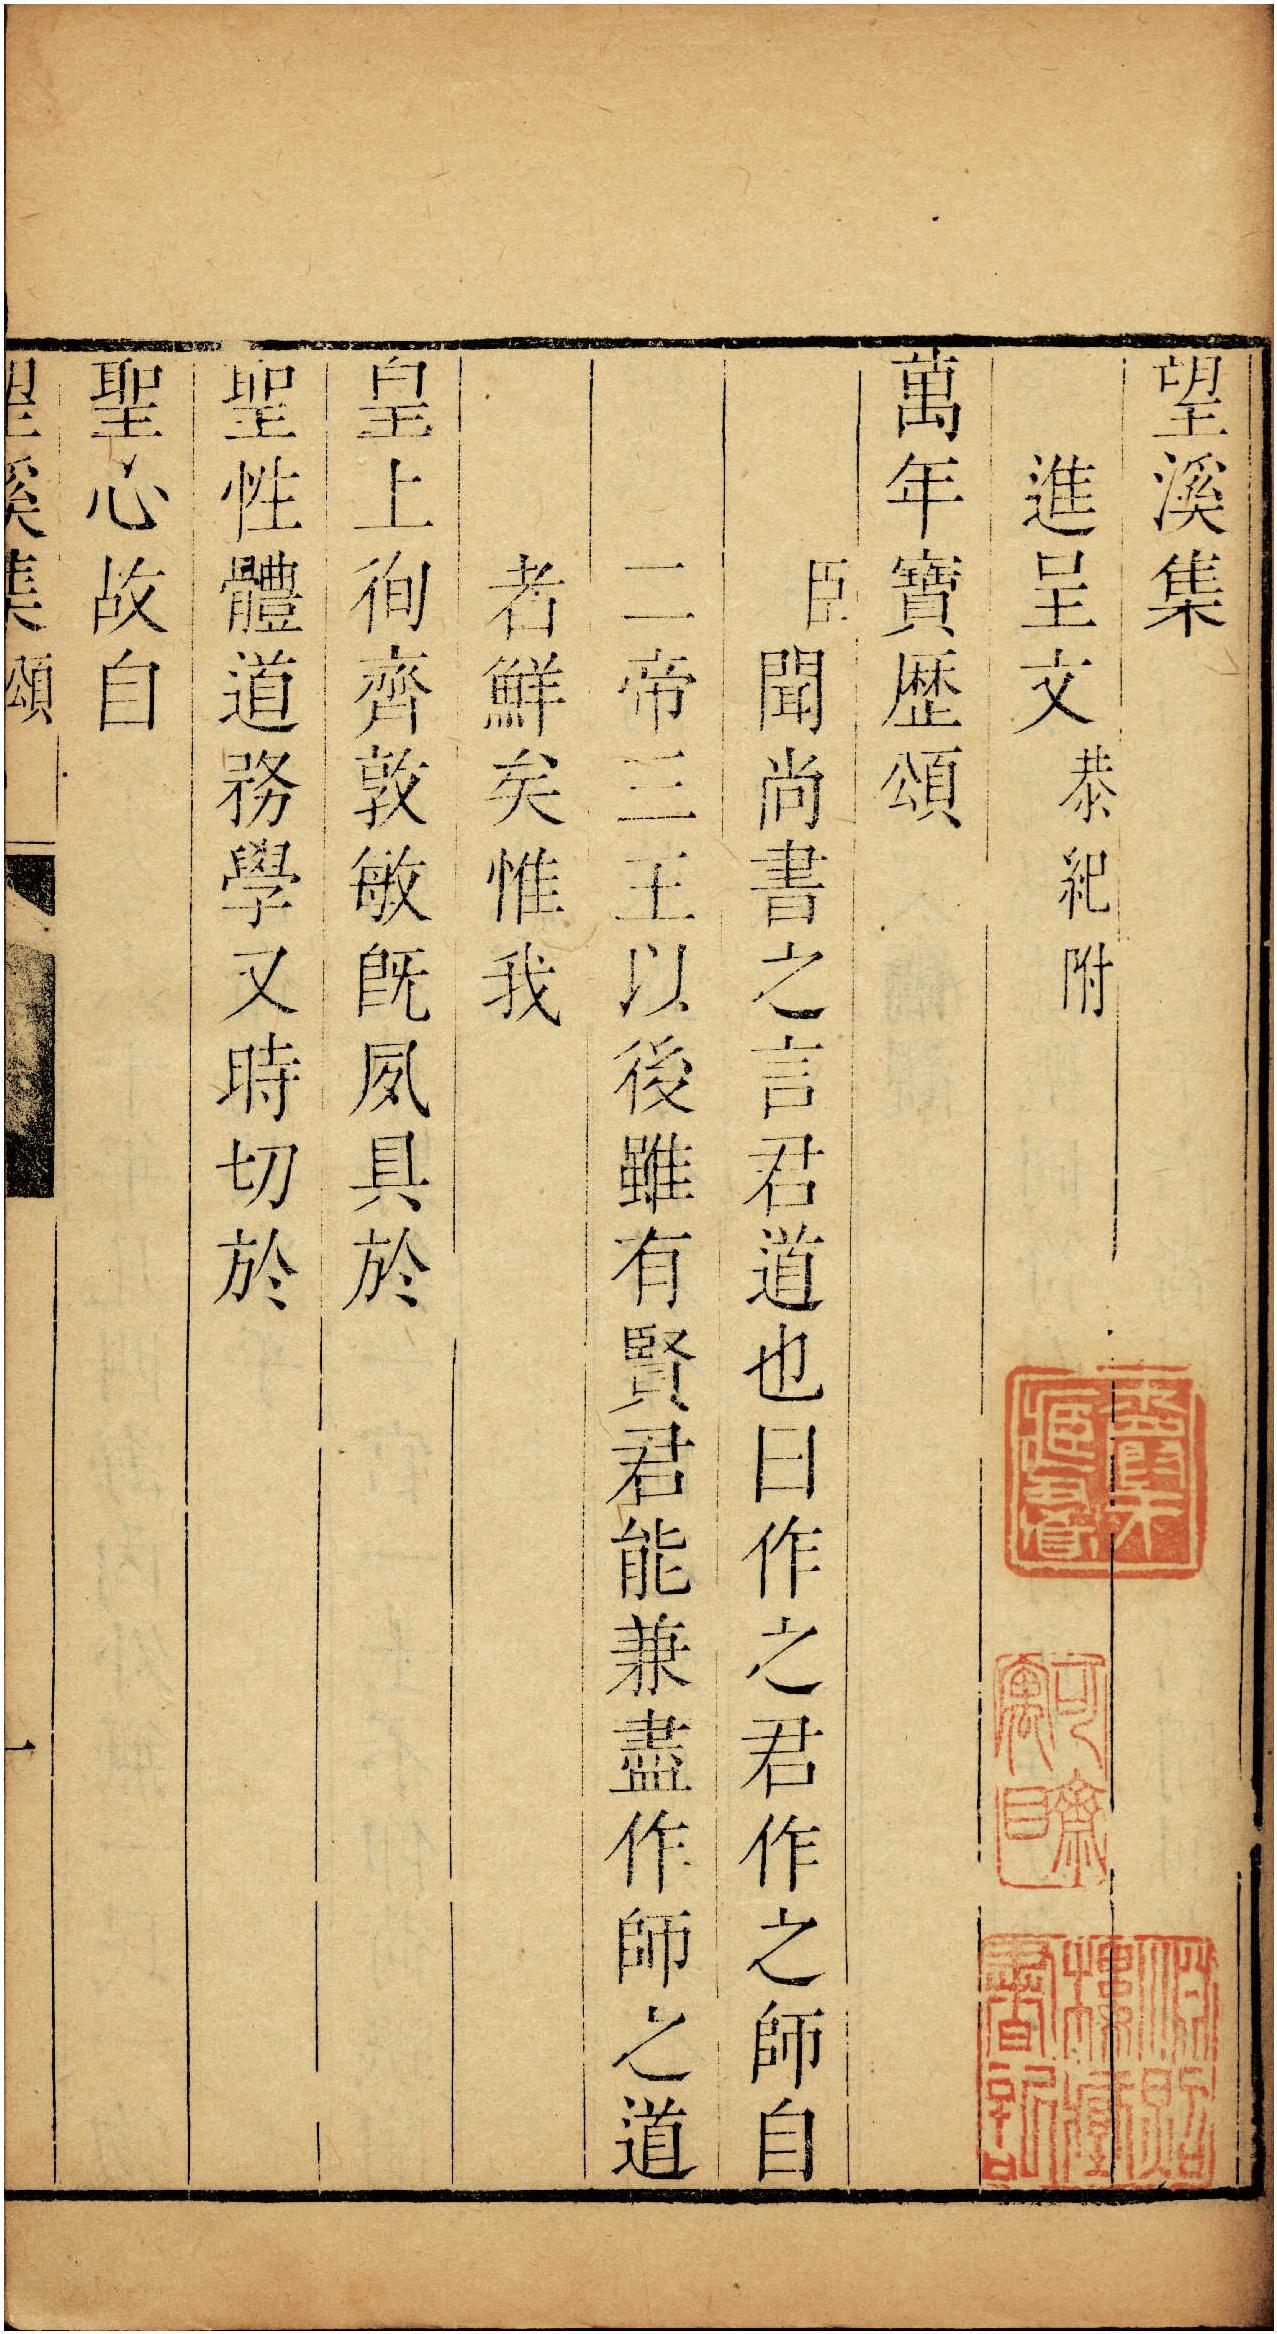 望溪集
進呈文恭紀附
萬年寶歷頌
臣聞尚書之言君道也曰作之君作之師自
二帝三王以後雖有賢君能兼盡作師之道
者鮮矣惟我
皇上徇齊敦敏既夙具於
聖性體道務學又時切於
聖心故自
望溪集 頌 一
可齋寓目